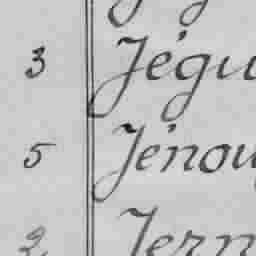 3 Jégu
5 Jénou
2 Jern